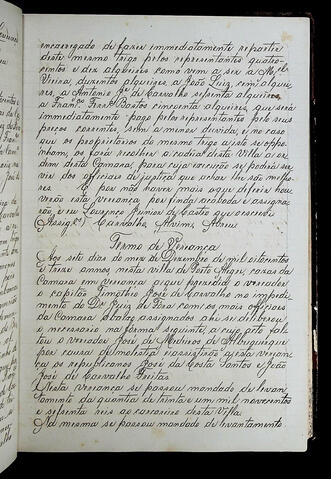 encarregado de fazer immediatamente repartir
deste mesmo trigo pelos representantes quatro-
centos e dez alqueires como vem a ser a M.el
Vieira, duzentos alqueires, a João Luiz, cem alquei-
res, a Antonio Je. de Carvalho sessenta alqueires,
a Fran.co Ferr.a Bastos cincoenta alqueires, que será
immediatamente pago pelos representantes pelo seus
preços correntes, sem a menor duvida, e no caso
que os proprietarios do mesmo trigo a isto se oppo-
nham, os fará recolher a cadeia desta Villa a or-
dem desta Camara, para cuja execução se poderá ser-
vir dos officiais de justiça que achar lhe são melho-
res. E por não haver mais que diferir hou-
verão esta vereança por finda, acabada e assigna-
rão, e eu Lourenço Junior de Castro que escrevi
(Assig.) Carvalho, Alvim, Abreu
Termo de Vereança
Aos sete dias do mez de Dezembro de mil oitocentos
e treze annos, nesta villa de Porto Alegre, cazas da
Camara em vereança a que prezedio o vereador
o capitão Timothio José de Carvalho no impedi-
mento do Dr. Juiz de Fóra com os mais officiaes
da Camara abaixo assignados ahi se deliberou
o necessario na forma seguinte, a cujo acto fal-
tou o vereador José de Medeiros de Albuquerque
por causa de molestia
ça os republicanos José da Costa Santos e João
José de Carvalho Freitas
Nesta vereança se passou mandado de levan-
tamento da quantia de trinta e um mil novecentos
e sessenta reis ao carcereiro desta Villa.
Na mesma se passou mandado de levantamento